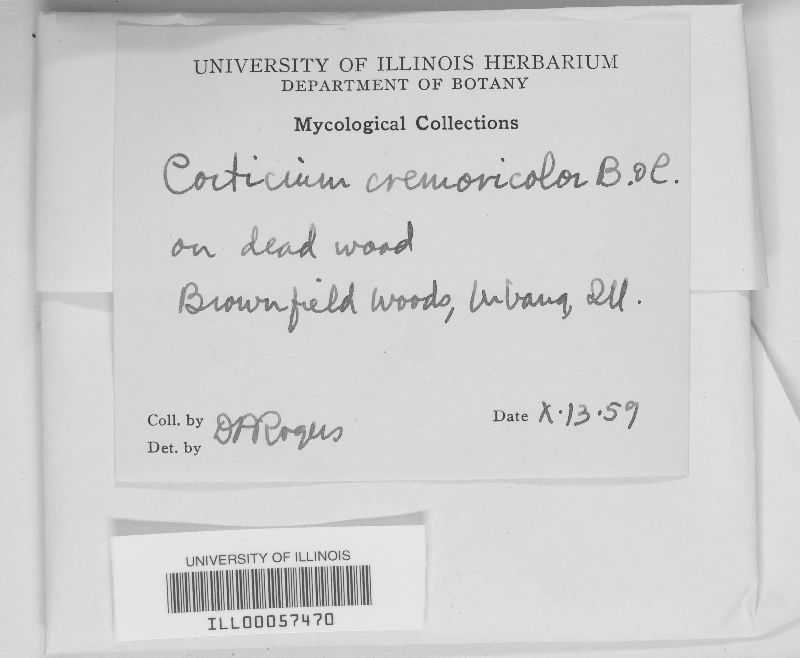 UNIVERSITY OF ILLINOIS HERBARIUM
DEPARTMENT OF BOTANY
Mycological Collections
Corticium cremoricolor B. & C.
on dead wood
Brownfield Woods, Urbana, Ill.
Coll. by
Det. by
DPRogers
Date X.13.59
UNIVERSITY OF ILLINOIS
ILL00057470